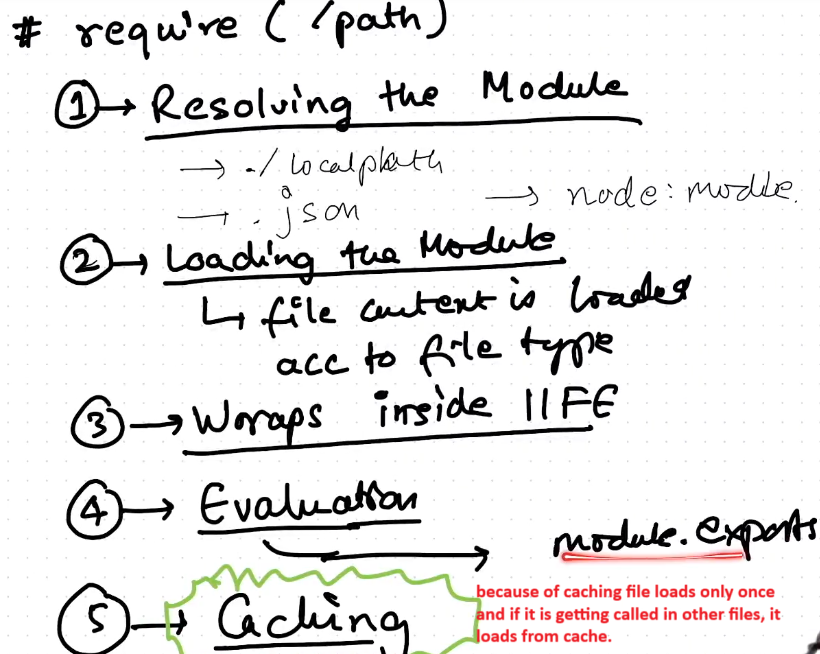 # require ( /path)
① → Resolving the Module
→ ./ localpath
→ .json → node: modle.
② → Loading the Module
↳ file content is loaded
acc to file type
③ → Wraps inside IIFE
④ → Evaluation
→ module.exports
⑤ → Caching
because of caching file loads only once
and if it is getting called in other files, it
loads from cache.